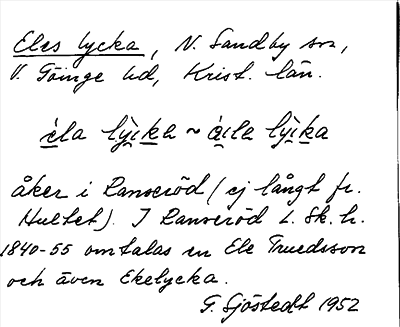 Eles lycka, N. Sandby sn,
V. Göinge hd, Krist. län.
èla lỳi̱ka ~ ài̱la lỳi̱ka
åker i Ranseröd (ej långt fr.
Hultet). I Ranseröd L. Sk. h.
1840-55 omtalas en Ele Truedsson
och även Ekelycka.
G. Sjöstedt 1952